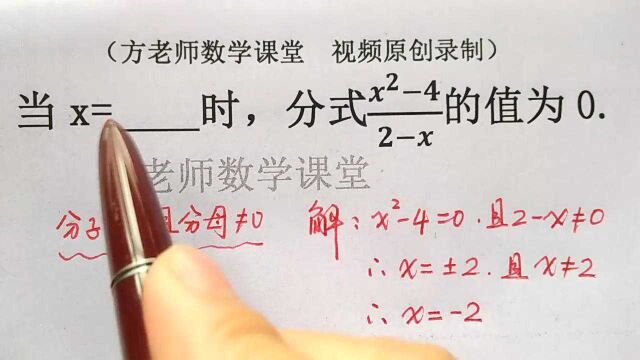 （方老师数学课堂　视频原创录制）
当 x=____时，分式\frac{x²-4}{2-x}的值为 0.
老师数学课堂
分子 且分母≠0
解：x²-4=0.且2-x≠0
∴ x=±2.且x≠2
∴ x=-2